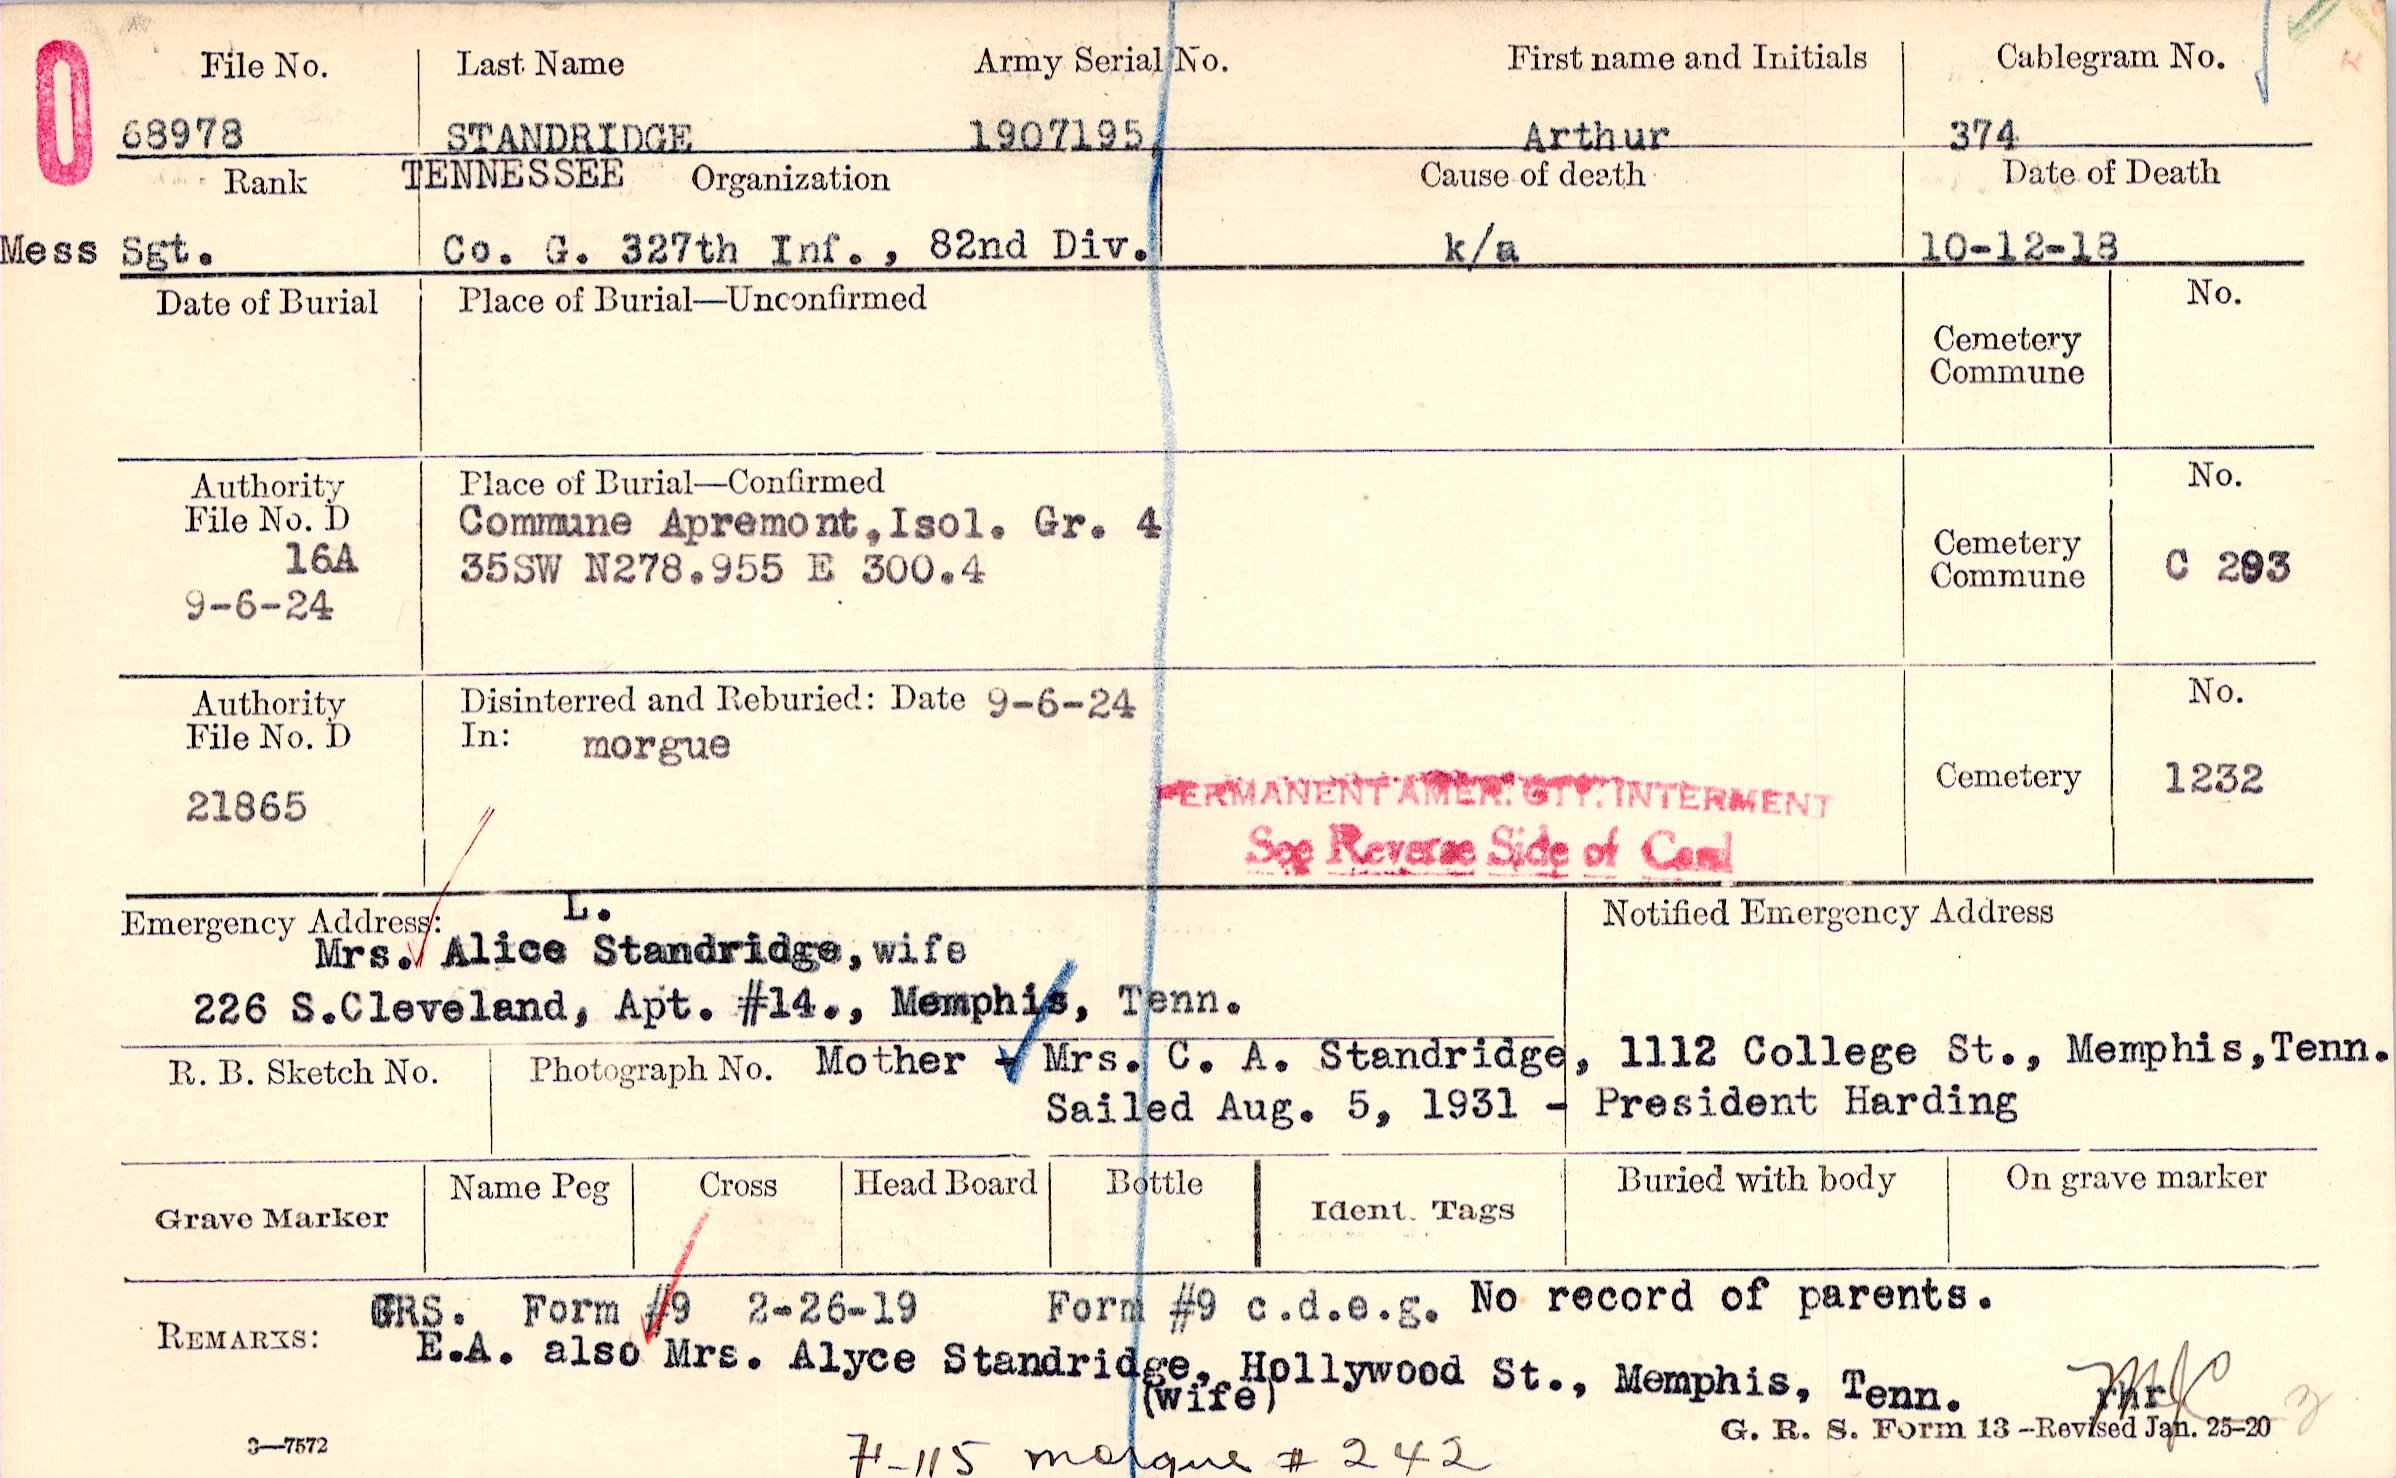 0
File No. Last Name Army Serial No. First name and Initials Cablegram No.
68978 STANDRIDGE 1907195 Arthur 374
Rank TENNESSEE Organization Cause of death Date of Death
Mess Sgt. Co. G. 327th Inf., 82nd Div. k/a 10-12-18
Date of Burial Place of Burial—Unconfirmed No.
Cemetery
Commune
Authority Place of Burial—Confirmed No.
File No. D Commune Apremont,Isol. Gr. 4 Cemetery
16A 35SW N278.955 E 300.4 Commune C 293
9-6-24
Authority Disinterred and Reburied: Date 9-6-24 No.
File No. D In: morgue
21865 Cemetery 1232
PERMANENT AMER. CTY. INTERMENT
See Reverse Side of Card
L.
Emergency Address: Notified Emergency Address
Mrs. Alice Standridge, wife
226 S.Cleveland, Apt. #14., Memphis, Tenn.
R. B. Sketch No. Photograph No. Mother - Mrs. C. A. Standridge, 1112 College St., Memphis,Tenn.
Sailed Aug. 5, 1931 - President Harding
Grave Marker Name Peg Cross Head Board Bottle Ident. Tags Buried with body On grave marker
REMARKS: GRS. Form #9 2-26-19 Form #9 c.d.e.g. No record of parents.
E.A. also Mrs. Alyce Standridge, Hollywood St., Memphis, Tenn.
(wife)
G. R. S. Form 13—Revised Jan. 25-20
3—7572
7-115 morgue # 242